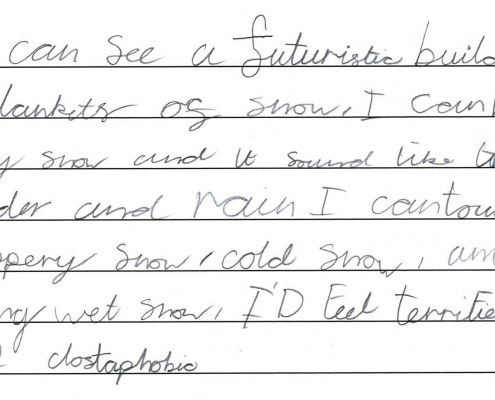 can see a futuristic build
lankets of snow, I can
y snow and it sound like
der and rain I can tou
ppery snow, cold snow, an
ng wet snow, I'D feel terrifie
clostaphobic